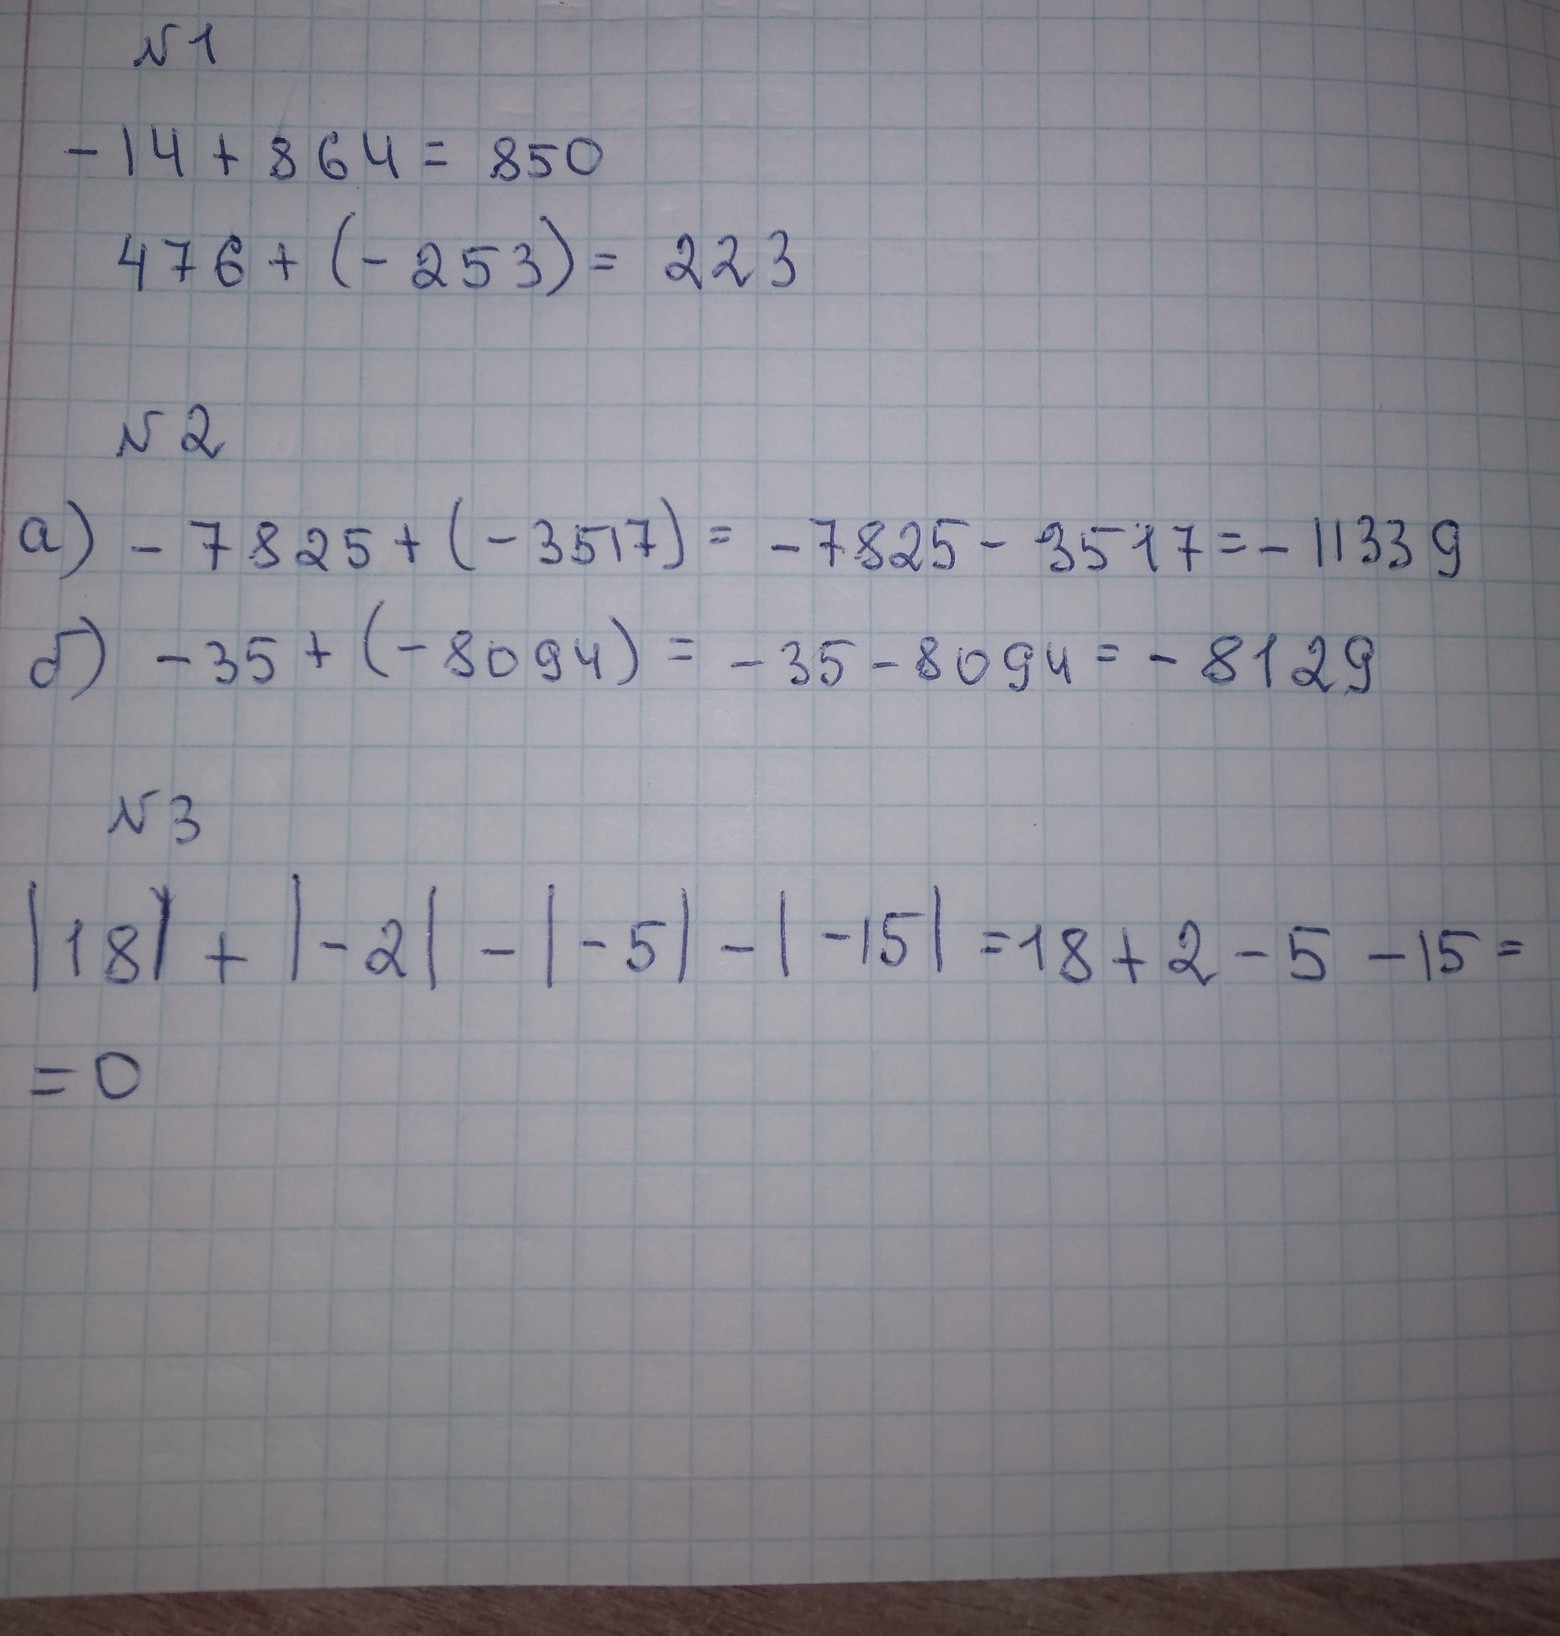 №1
-14+864=850
476+(-253)=223
№2
а) -7825+(-3517)=-7825-3517=-11339
б) -35+(-8094)=-35-8094=-8129
№3
|18|+|-2|-|-5|-|-15|=18+2-5-15=
=0